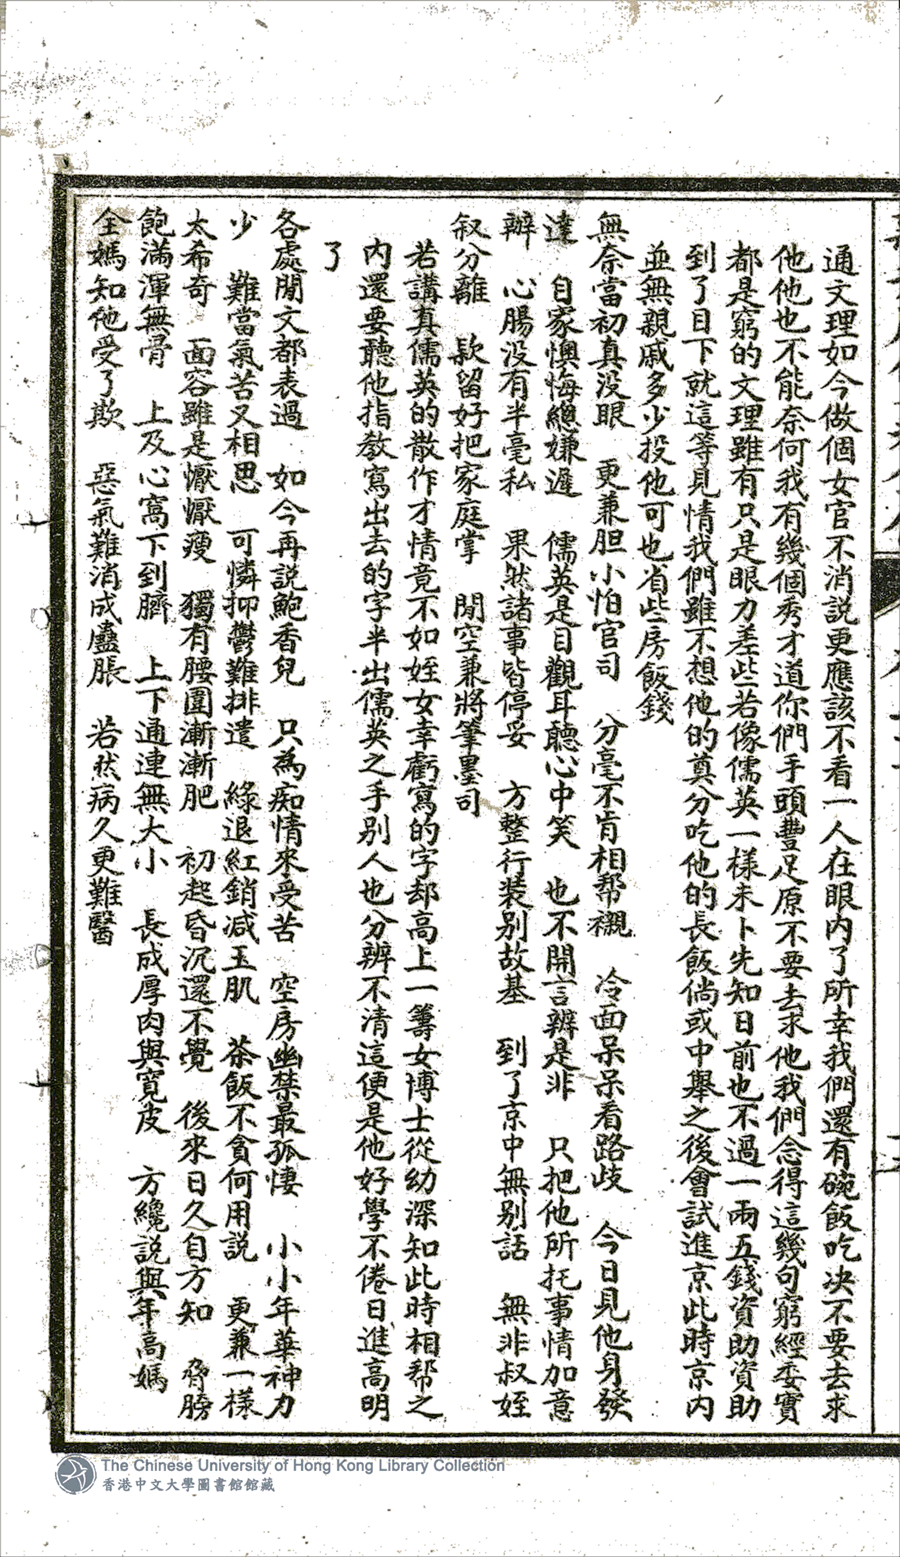 通文理如今做個女官不消説更應該不看一人在眼内了所幸我們還有碗飯吃决不要去求
他他也不能奈何我有幾個秀才道你們手頭豐足原不要去求他我們念得這幾句窮經委實
都是窮的文理雖有只是眼力差些若像儒英一樣未卜先知日前也不過一兩五錢資助資助
到了目下就這等見情我們雖不想他的奠分吃他的長飯倘或中舉之後會試進京此時京内
並無親戚多少投他可也省些房飯錢
無奈當初真没眼　更兼胆小怕官司　分毫不肯相帮襯　冷面呆呆看路歧　今日見他身發
達　自家懊悔總嫌遲　儒英是目觀耳聽心中笑　也不開言辨是非　只把他所托事情加意
辦　心腸没有半毫私　果然諸事皆停妥　方整行装别故基　到了京中無别話　無非叔姪
叙分離　欵留好把家庭掌　閒空兼將筆墨司
若講真儒英的散作才情竟不如姪女幸虧寫的字却高上一籌女博士從幼深知此時相帮之
内還要聽他指教寫出去的字半出儒英之手别人也分辨不清這便是他好學不倦日進高明
了
各處閒文都表過　如今再説鮑香兒　只為痴情來受苦　空房幽禁最孤悽　小小年華神力
少　難當氣苦又相思　可憐抑鬱難排遣　綠退紅銷减玉肌　茶飯不貪何用説　更兼一樣
太希奇　面容雖是懨懨瘦　獨有腰圍漸漸肥　初起昏沉還不覺　後來日久自方知　脅膀
飽滿渾無骨　上及心窩下到臍　上下通連無大小　長成厚肉與寬皮　方纔説與年高媽
全媽知他受了欺　惡氣難消成蠱脹　若然病久更難醫
The Chinese University of Hong Kong Library Collection
香港中文大學圖書館館藏